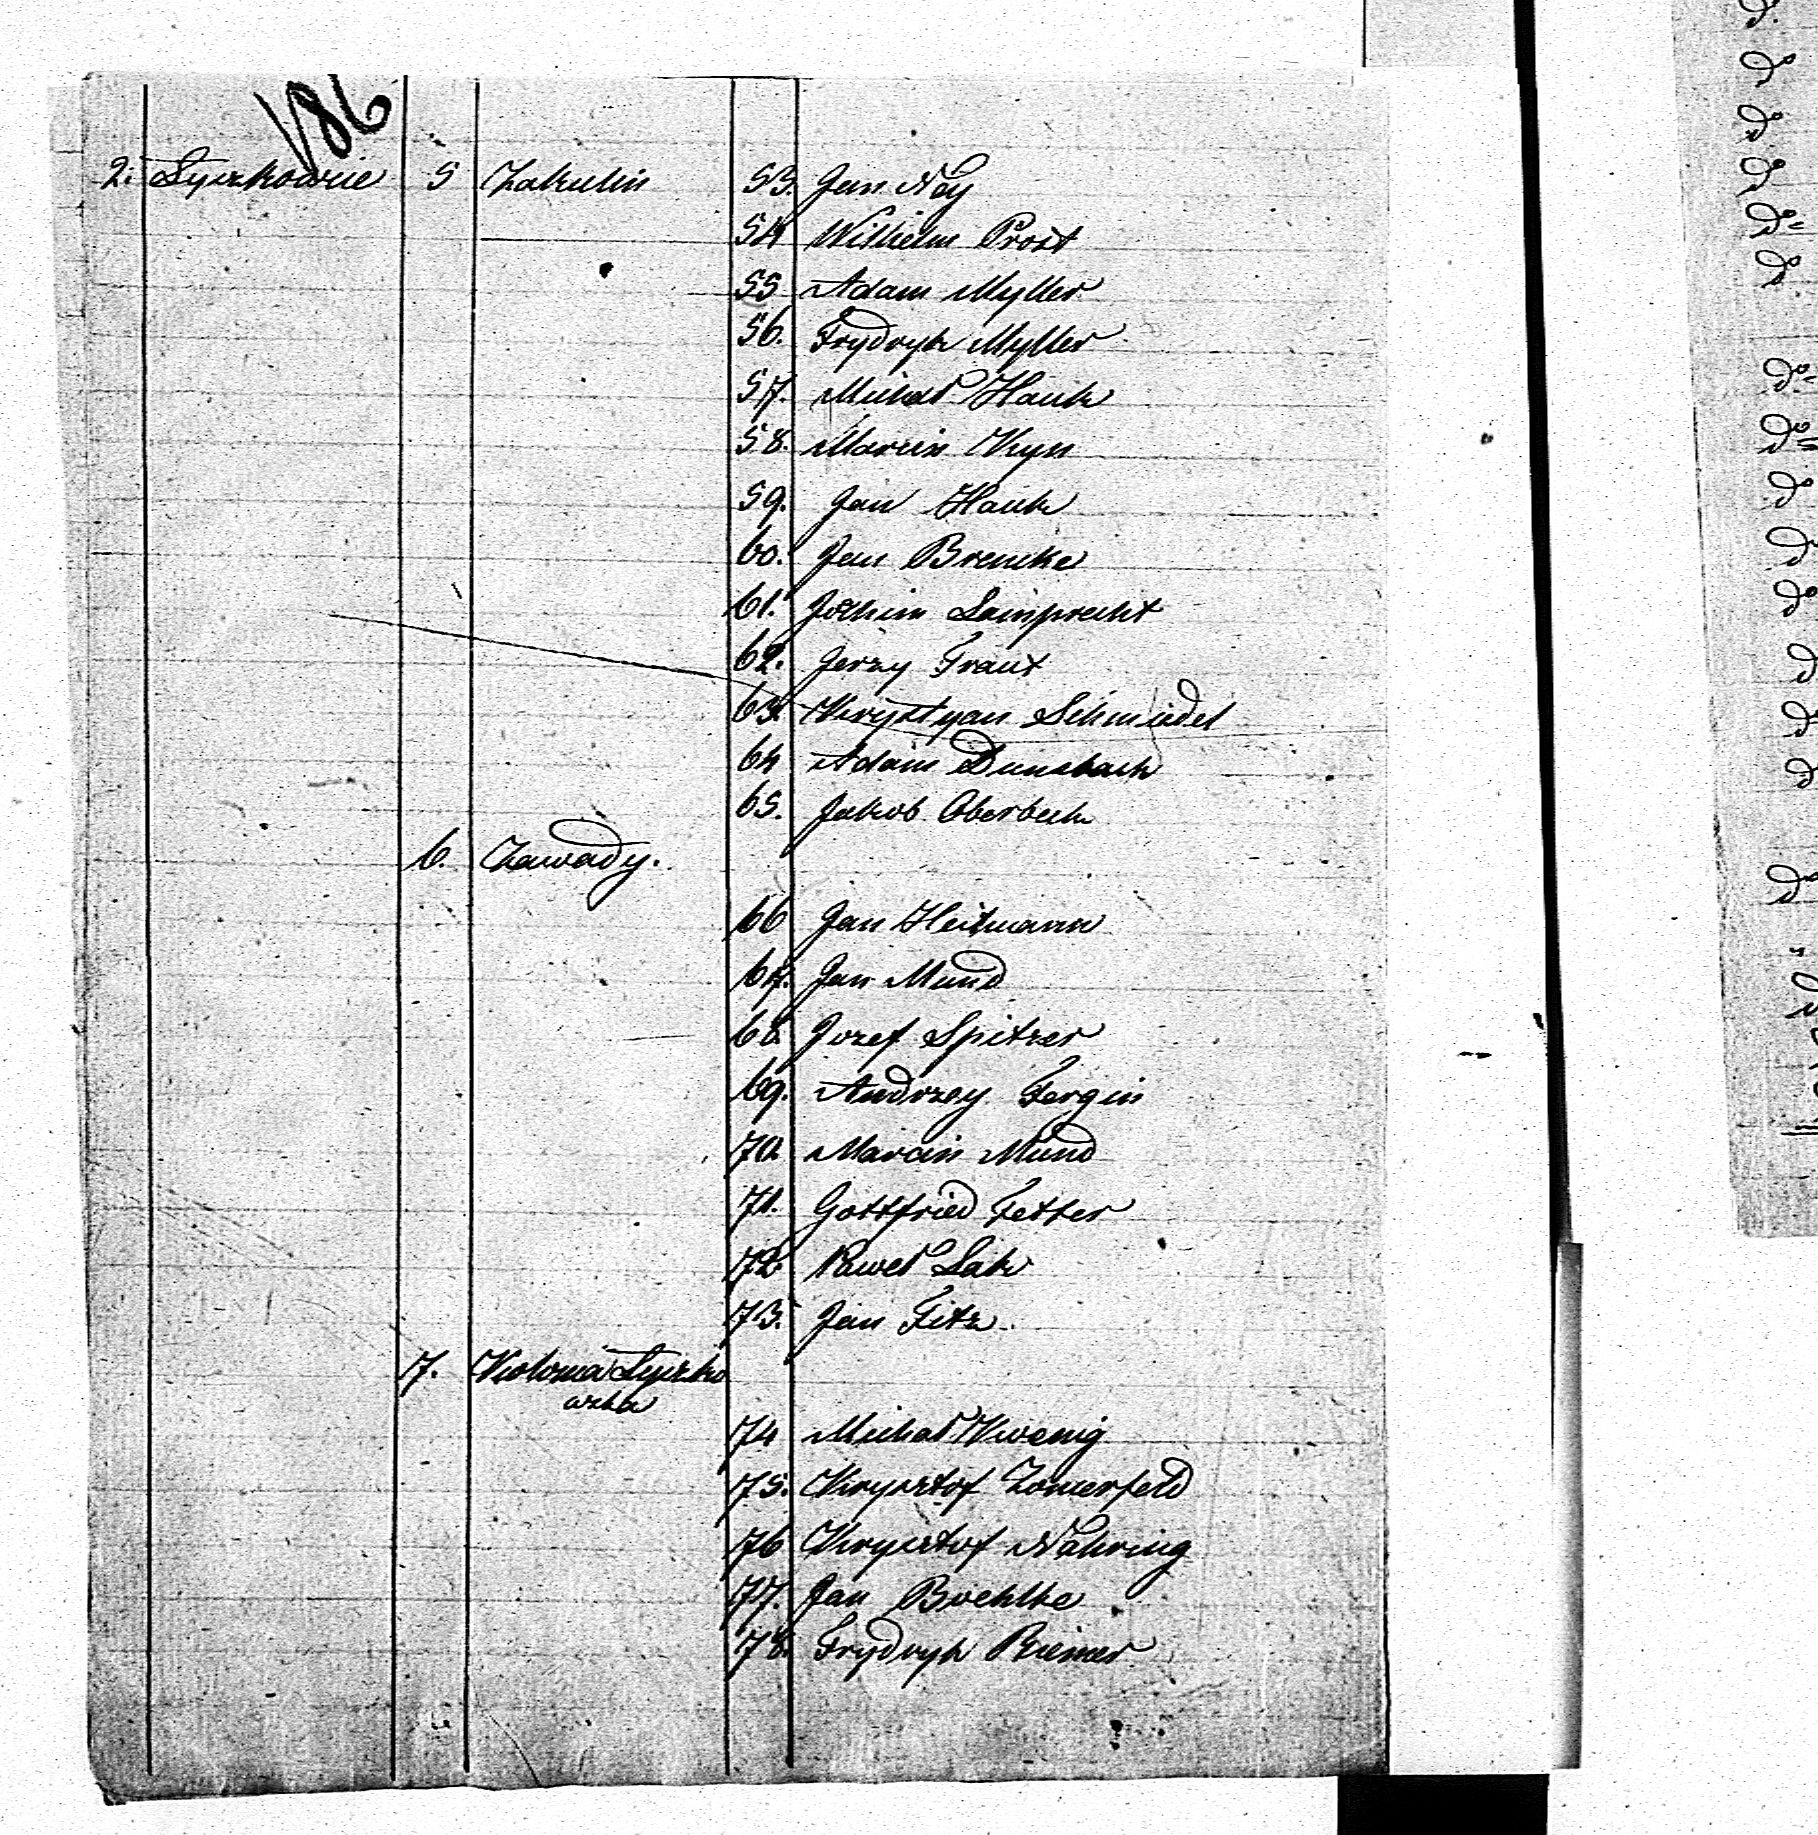 186
2. Łyszkowice 5 Zakulin 53. Jan Ney
54 Wilhelm Prost
55 Adam Myller
56. Frydryk Myller
57. Michał Hauk
58. Marcin Kyn
59. Jan Hauk
60. Jan Bremke
61. Jochim Lamprecht
62. Jerzy Traut
63. Krystyan Schmiedel
64 Adam Dunsbach
65. Jakob Oberbeck
6. Zawady.
66 Jan Heitmann
67. Jan Mund
68 Jozef Spitzer
69. Andrzey Fergin
70. Marcin Mund
71. Gottfried Fetter
72 Paweł Lak
73. Jan Fitz
7. Kolonia Łyszko
wska
74 Michał Kwenig
75. Krysztof Zomerfeld
76 Krysztof Nahring
77. Jan Boehlke
78. Frydryk Riemer